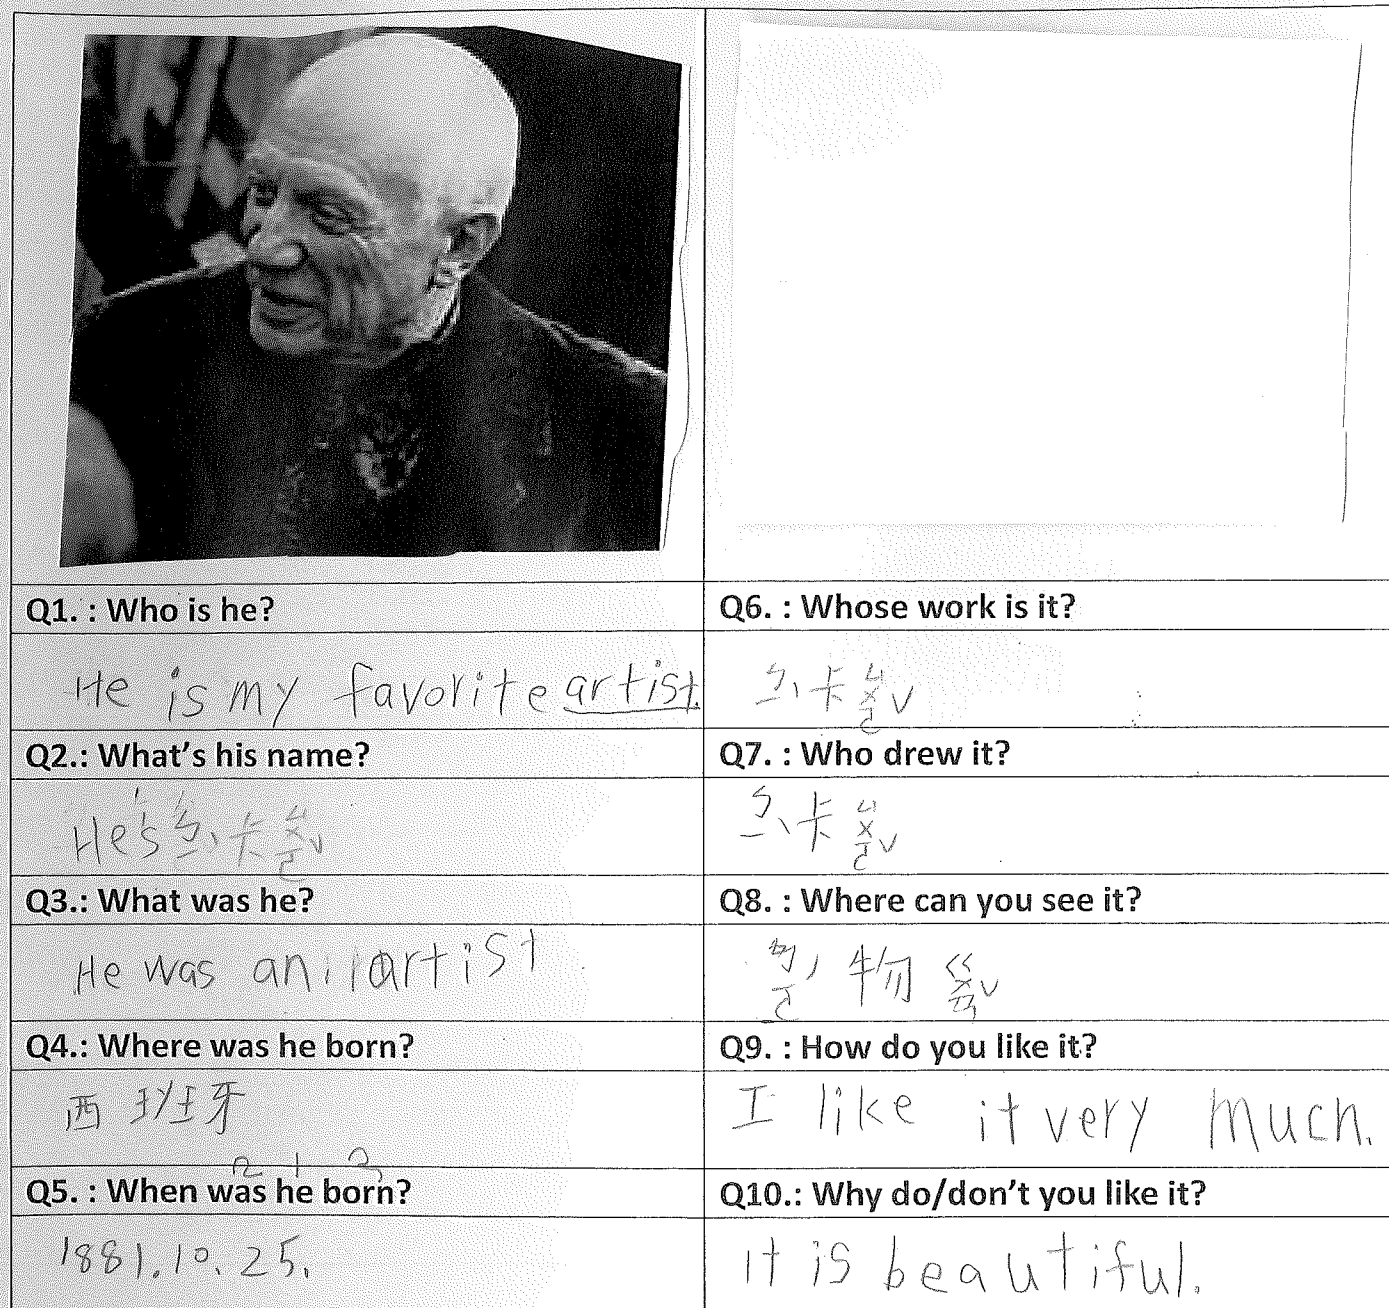 Q1. : Who is he?
He is my favorite artist.
Q2.: What's his name?
He's ㄅㄧˋ卡ㄙㄨㄛˇ
Q3.: What was he?
He was an artist
Q4.: Where was he born?
西班牙
2 1 3
Q5. : When was he born?
1881.10.25.
Q6. : Whose work is it?
ㄅㄧˋ卡ㄙㄨㄛˇ
Q7. : Who drew it?
ㄅㄧˋ卡ㄙㄨㄛˇ
Q8. : Where can you see it?
ㄅㄛˊ物ㄍㄨㄢˇ
Q9. : How do you like it?
I like it very much.
Q10.: Why do/don't you like it?
It is beautiful.